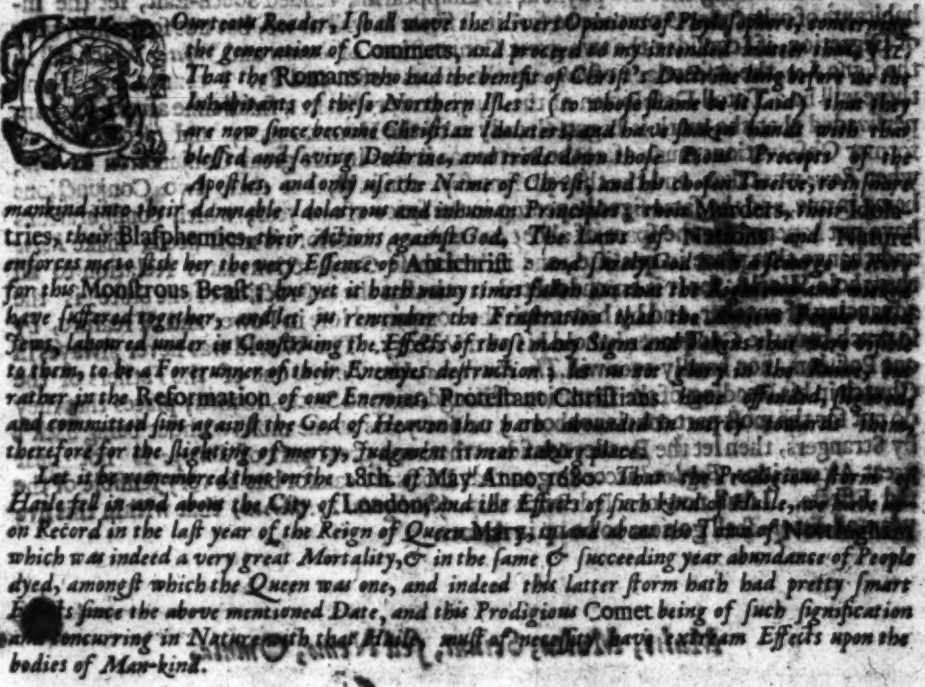 COurteous Reader, I ſhall wave the divers Opinions of Phyloſophers, concerning
the generation of Commets, and proceed to my intended matter
That the Romans who had the benefit of Chriſt's Doctrine long before us the
Inhabitants of theſe Northern Iſles: (to whoſe ſhame be it ſaid) that they
are now ſince become Chriſtian Idolaters, and have ſhaken hands with that
bleſſed and ſaving Doctrine, and trode down thoſe Precepts of the
Apoſtles, and only uſe the Name of Chriſt, and his choſen Twelve, to inſnare
mankind into their damnable Idolatrous and inhuman Principles; their Murders, their Idola-
tries, their Blaſphemies, their Actions againſt God, The Laws of Nations and Nature
enforces me to ſtile her the very Eſſence of Antichriſt: and God
for this Monſtrous Beaſt; but yet it hath many times fallen out that the
have ſuffered together, and let us remember the Fruſtration that the
Jews, laboured under in Conſtruing the Effects of thoſe many Signs and Tokens that were viſible
to them, to be a Forerunner of their Enemyes deſtruction; let us not glory in the but
rather in the Reformation of our Enemies, Proteſtant Chriſtians have offended, ſlighted,
and committed ſins againſt the God of Heaven that hath abounded in mercy towards them,
therefore for the ſlighting of mercy, Judgment is near taking place.
Let it be remembred that on the 18th. of May Anno 1680. That the Prodigious ſtorm of
Haile fell in and about the City of London, and the Effects of ſuch kind of Haile, we have
on Record in the laſt year of the Reign of Queen Mary, in and about the Town of Nottingham
which was indeed a very great Mortality, & in the ſame & ſucceeding year abundance of People
dyed, amongſt which the Queen was one, and indeed this latter ſtorm hath had pretty ſmart
ſince the above mentioned Date, and this Prodigious Comet being of ſuch ſignification
and concurring in Nature with that Haile, muſt of neceſſity have extream Effects upon the
bodies of Man-kind.